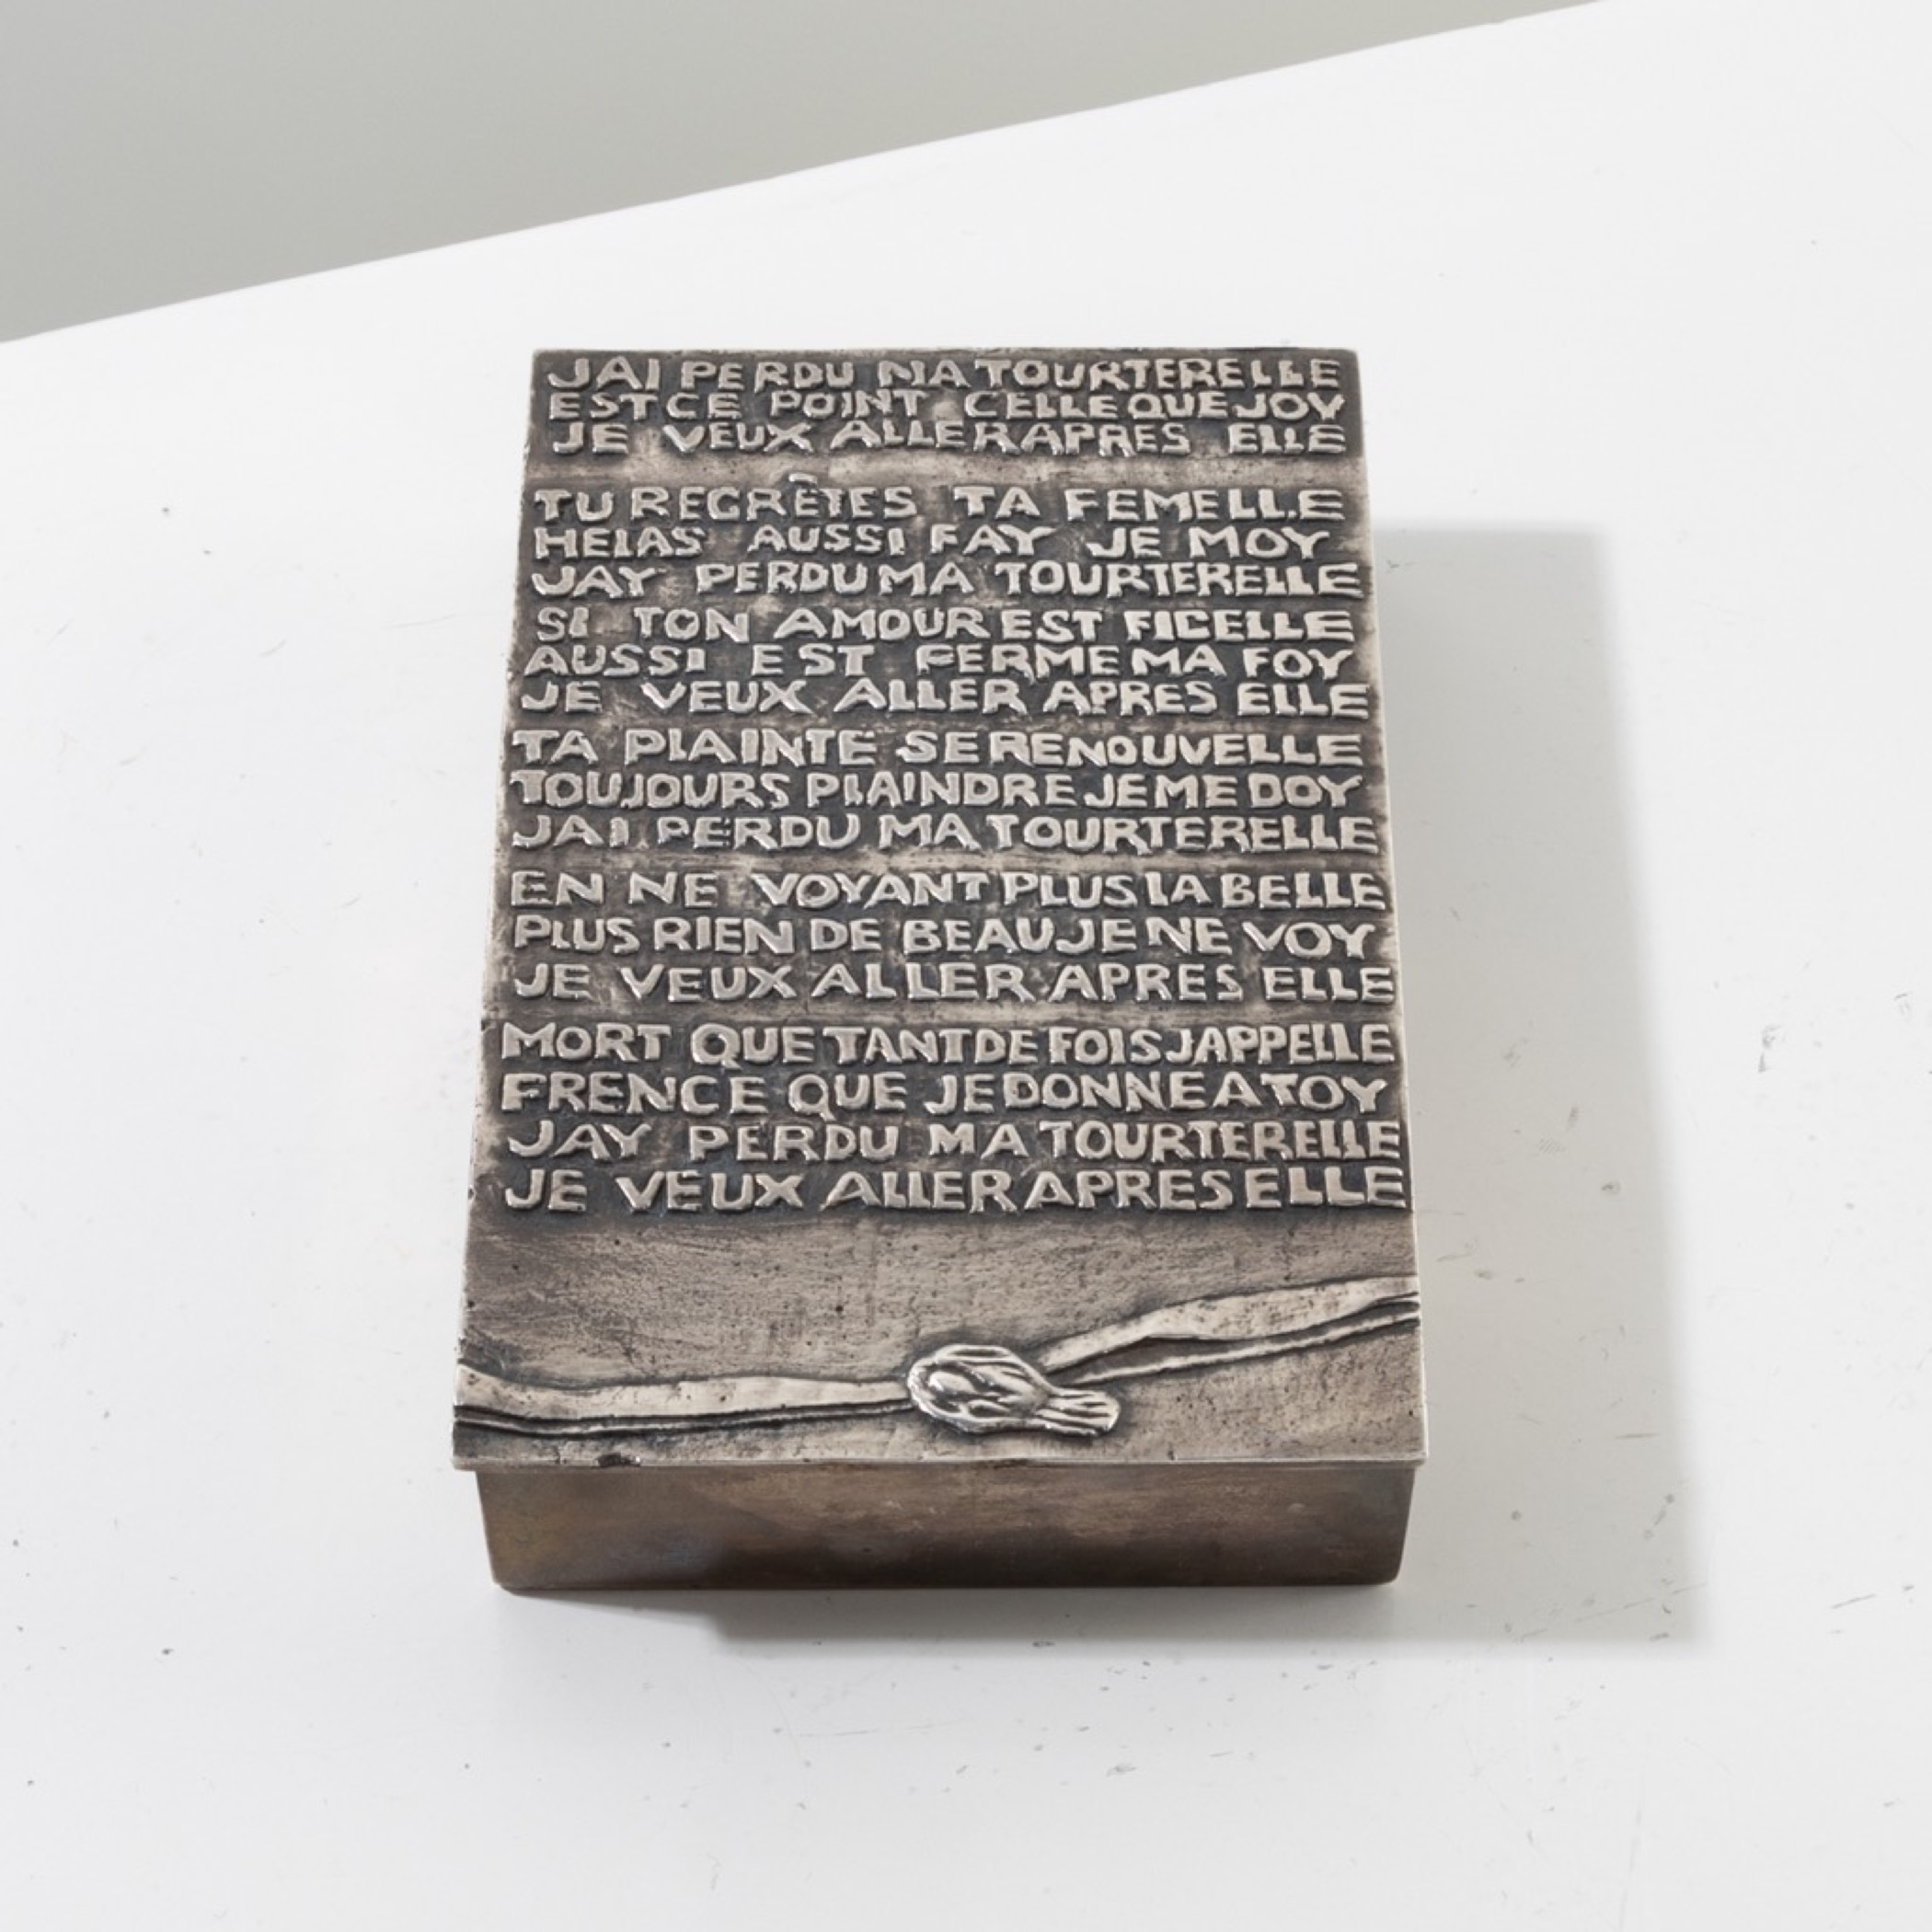 JAI PERDU MA TOURTERELLE
ESTCE POINT CELLE QUE JOY
JE VEUX ALLER APRES ELLE
TU REGRÈTES TA FEMELLE
HELAS AUSSI FAY JE MOY
JAY PERDU MA TOURTERELLE
SI TON AMOUR EST FIDELLE
AUSSI EST FERME MA FOY
JE VEUX ALLER APRES ELLE
TA PLAINTE SE RENOUVELLE
TOUJOURS PLAINDRE JE ME DOY
JAI PERDU MA TOURTERELLE
EN NE VOYANT PLUS LA BELLE
PLUS RIEN DE BEAU JE NE VOY
JE VEUX ALLER APRES ELLE
MORT QUE TANT DE FOIS JAPPELLE
FRENCE QUE JE DONNE A TOY
JAY PERDU MA TOURTERELLE
JE VEUX ALLER APRES ELLE